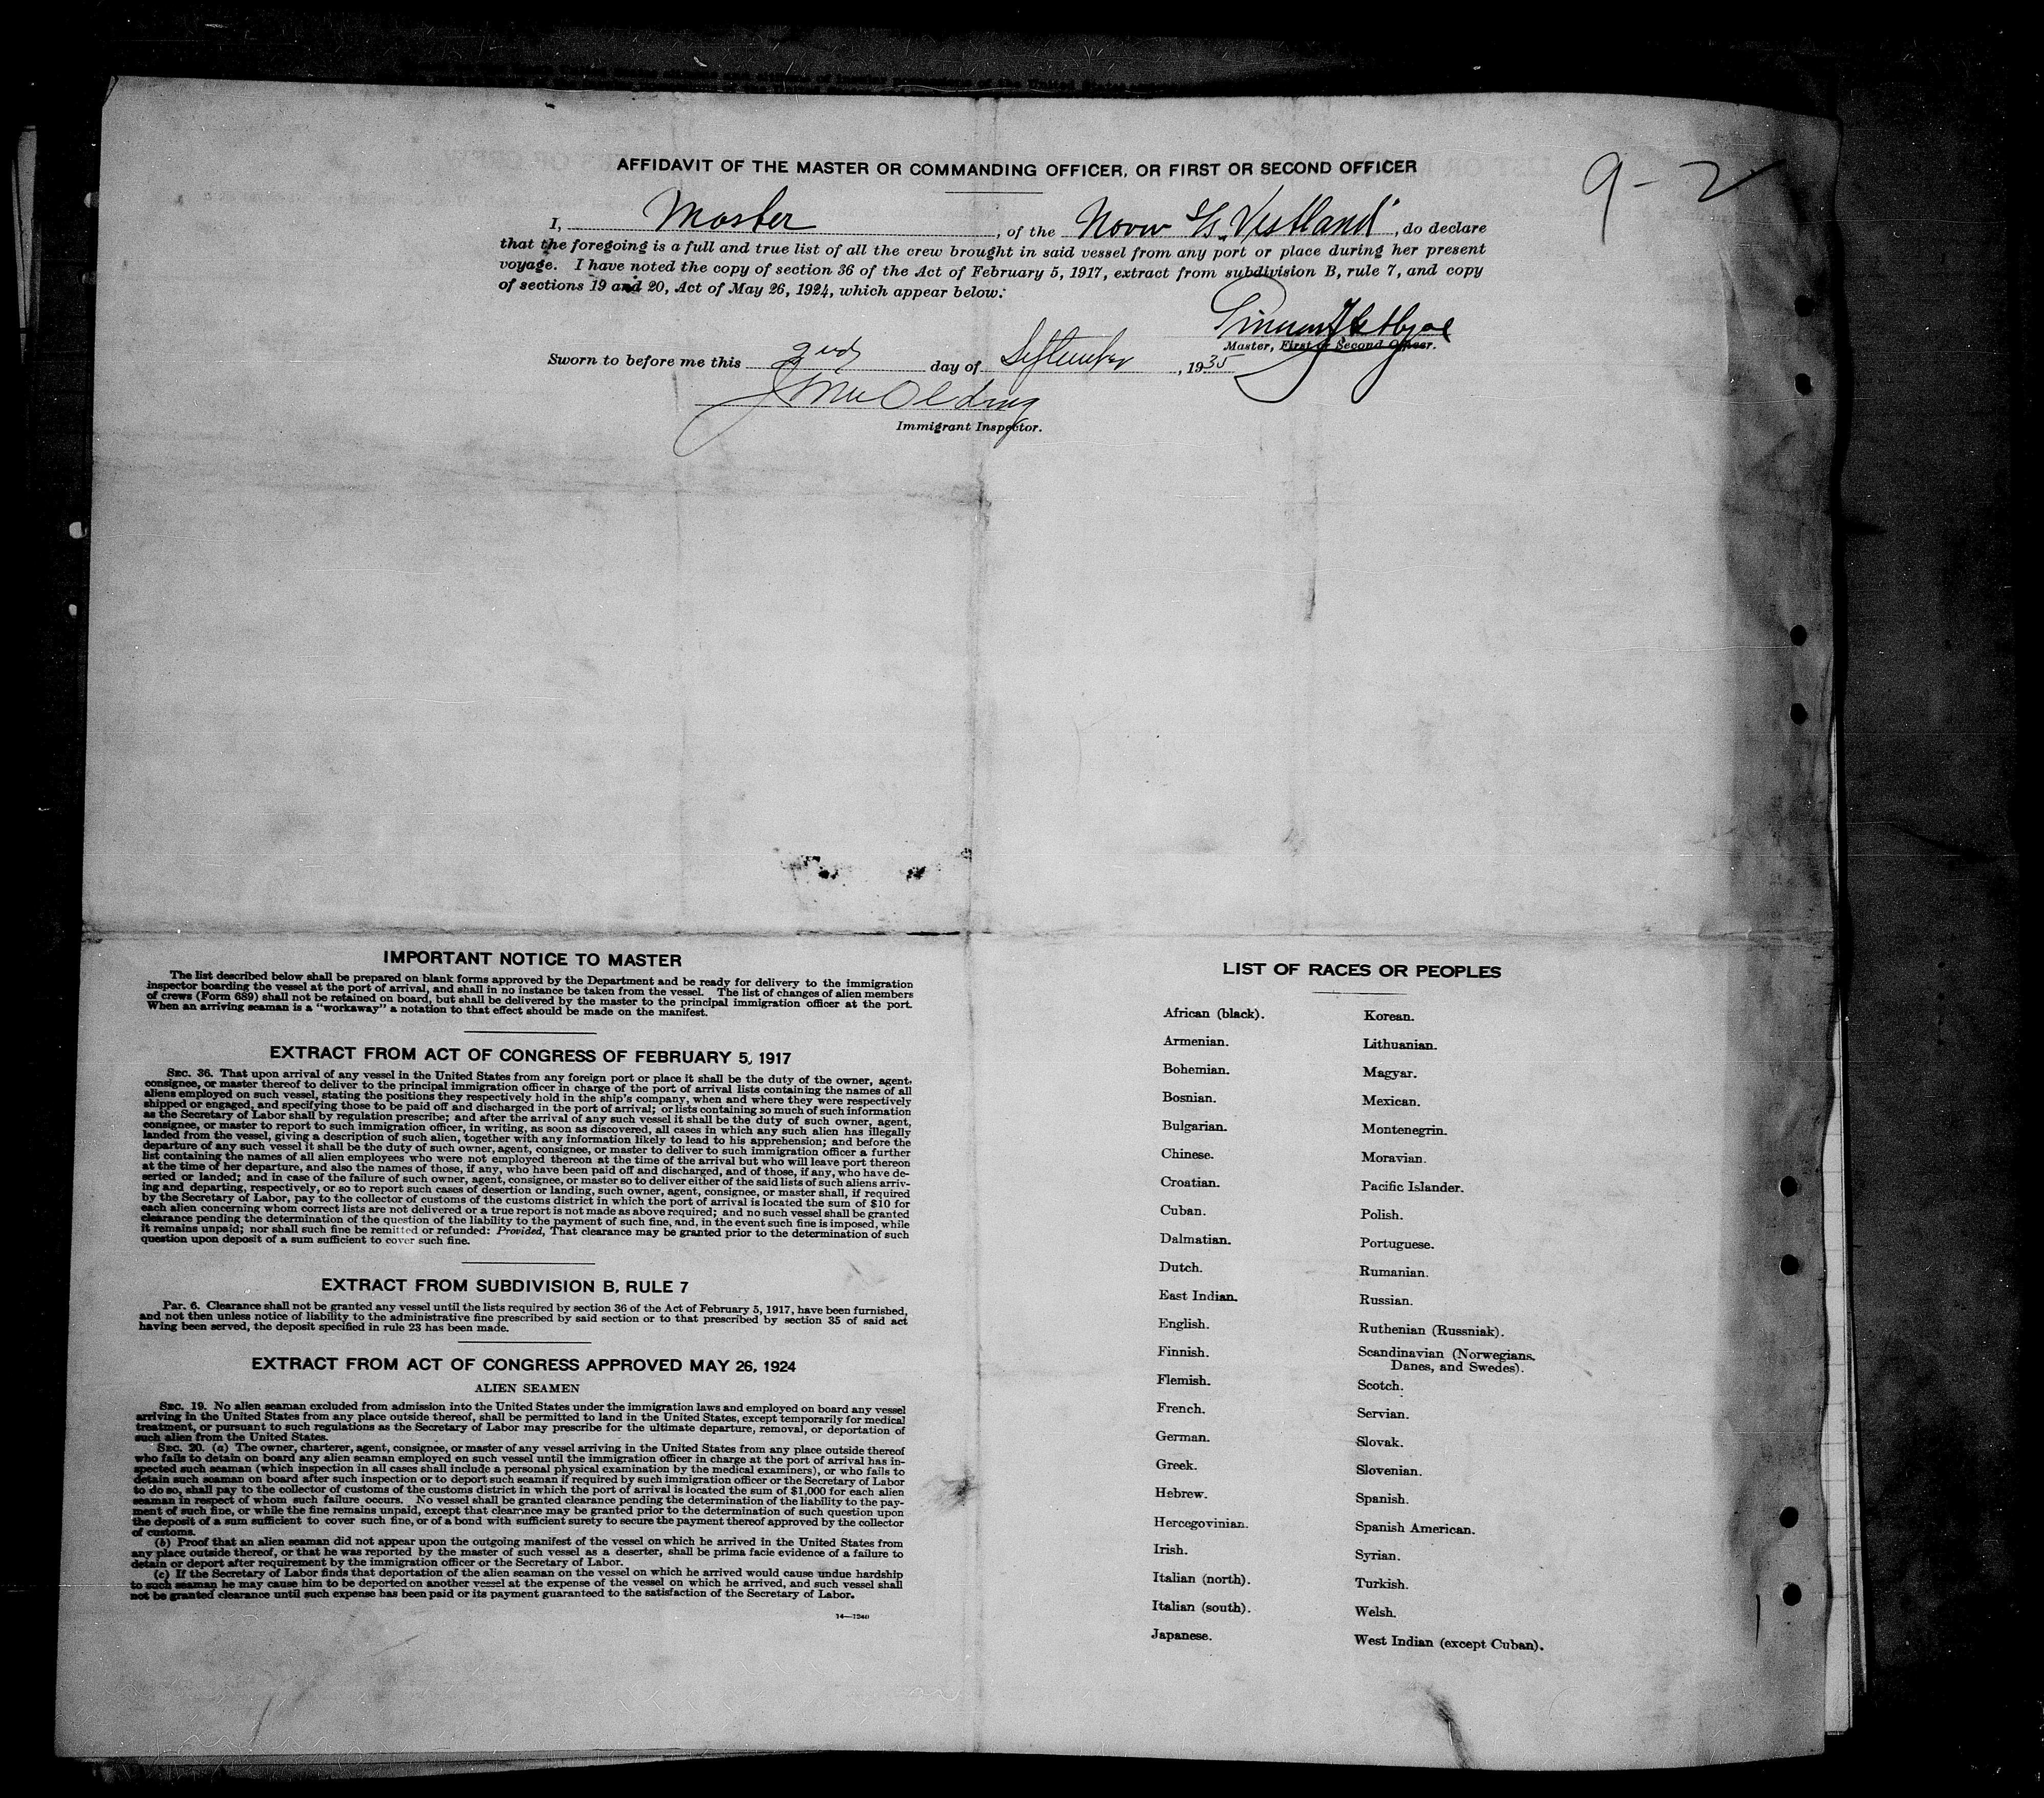 AFFIDAVIT OF THE MASTER OR COMMANDING OFFICER, OR FIRST OR SECOND OFFICER
9-2
I, Master, of the Norw S/S. "Vestland", do declare
that the foregoing is a full and true list of all the crew brought in said vessel from any port or place during her present
voyage. I have noted the copy of section 36 of the Act of February 5, 1917, extract from subdivision B, rule 7, and copy
of sections 19 and 20, Act of May 26, 1924, which appear below:
Master, First or Second Officer.
Sworn to before me this 2nd day of September, 1935
Immigrant Inspector.
IMPORTANT NOTICE TO MASTER
The list described below shall be prepared on blank forms approved by the Department and be ready for delivery to the immigration
inspector boarding the vessel at the port of arrival, and shall in no instance be taken from the vessel. The list of changes of alien members
of crews (Form 689) shall not be retained on board, but shall be delivered by the master to the principal immigration officer at the port.
When an arriving seaman is a "workaway" a notation to that effect should be made on the manifest.
EXTRACT FROM ACT OF CONGRESS OF FEBRUARY 5, 1917
SEC. 36. That upon arrival of any vessel in the United States from any foreign port or place it shall be the duty of the owner, agent,
consignee, or master thereof to deliver to the principal immigration officer in charge of the port of arrival lists containing the names of all
aliens employed on such vessel, stating the positions they respectively hold in the ship's company, when and where they were respectively
shipped or engaged, and specifying those to be paid off and discharged in the port of arrival; or lists containing so much of such information
as the Secretary of Labor shall by regulation prescribe; and after the arrival of any such vessel it shall be the duty of such owner, agent,
consignee, or master to report to such immigration officer, in writing, as soon as discovered, all cases in which any such alien has illegally
landed from the vessel, giving a description of such alien, together with any information likely to lead to his apprehension; and before the
departure of any such vessel it shall be the duty of such owner, agent, consignee, or master to deliver to such immigration officer a further
list containing the names of all alien employees who were not employed thereon at the time of the arrival but who will leave port thereon
at the time of her departure, and also the names of those, if any, who have been paid off and discharged, and of those, if any, who have de-
serted or landed; and in case of the failure of such owner, agent, consignee, or master so to deliver either of the said lists of such aliens arriv-
ing and departing, respectively, or so to report such cases of desertion or landing, such owner, agent, consignee, or master shall, if required
by the Secretary of Labor, pay to the collector of customs of the customs district in which the port of arrival is located the sum of $10 for
each alien concerning whom correct lists are not delivered or a true report is not made as above required; and no such vessel shall be granted
clearance pending the determination of the question of the liability to the payment of such fine, and, in the event such fine is imposed, while
it remains unpaid; nor shall such fine be remitted or refunded: Provided, That clearance may be granted prior to the determination of such
question upon deposit of a sum sufficient to cover such fine.
EXTRACT FROM SUBDIVISION B, RULE 7
Par. 6. Clearance shall not be granted any vessel until the lists required by section 36 of the Act of February 5, 1917, have been furnished,
and not then unless notice of liability to the administrative fine prescribed by said section or to that prescribed by section 35 of said act
having been served, the deposit specified in rule 23 has been made.
EXTRACT FROM ACT OF CONGRESS APPROVED MAY 26, 1924
ALIEN SEAMEN
SEC. 19. No alien seaman excluded from admission into the United States under the immigration laws and employed on board any vessel
arriving in the United States from any place outside thereof, shall be permitted to land in the United States, except temporarily for medical
treatment, or pursuant to such regulations as the Secretary of Labor may prescribe for the ultimate departure, removal, or deportation of
such alien from the United States.
SEC. 20. (a) The owner, charterer, agent, consignee, or master of any vessel arriving in the United States from any place outside thereof
who fails to detain on board any alien seaman employed on such vessel until the immigration officer in charge at the port of arrival has in-
spected such seaman (which inspection in all cases shall include a personal physical examination by the medical examiners), or who fails to
detain such seaman on board after such inspection or to deport such seaman if required by such immigration officer or the Secretary of Labor
to do so, shall pay to the collector of customs of the customs district in which the port of arrival is located the sum of $1,000 for each alien
seaman in respect of whom such failure occurs. No vessel shall be granted clearance pending the determination of the liability to the pay-
ment of such fine, or while the fine remains unpaid, except that clearance may be granted prior to the determination of such question upon
the deposit of a sum sufficient to cover such fine, or of a bond with sufficient surety to secure the payment thereof approved by the collector
of customs.
(b) Proof that an alien seaman did not appear upon the outgoing manifest of the vessel on which he arrived in the United States from
any place outside thereof, or that he was reported by the master of such vessel as a deserter, shall be prima facie evidence of a failure to
detain or deport after requirement by the immigration officer or the Secretary of Labor.
(c) If the Secretary of Labor finds that deportation of the alien seaman on the vessel on which he arrived would cause undue hardship
to such seaman he may cause him to be deported on another vessel at the expense of the vessel on which he arrived, and such vessel shall
not be granted clearance until such expense has been paid or its payment guaranteed to the satisfaction of the Secretary of Labor.
14—1240
LIST OF RACES OR PEOPLES
African (black).
Armenian.
Bohemian.
Bosnian.
Bulgarian.
Chinese.
Croatian.
Cuban.
Dalmatian.
Dutch.
East Indian.
English.
Finnish.
Flemish.
French.
German.
Greek.
Hebrew.
Hercegovinian.
Irish.
Italian (north).
Italian (south).
Japanese.
Korean.
Lithuanian.
Magyar.
Mexican.
Montenegrin.
Moravian.
Pacific Islander.
Polish.
Portuguese.
Rumanian.
Russian.
Ruthenian (Russniak).
Scandinavian (Norwegians,
Danes, and Swedes).
Scotch.
Servian.
Slovak.
Slovenian.
Spanish.
Spanish American.
Syrian.
Turkish.
Welsh.
West Indian (except Cuban).